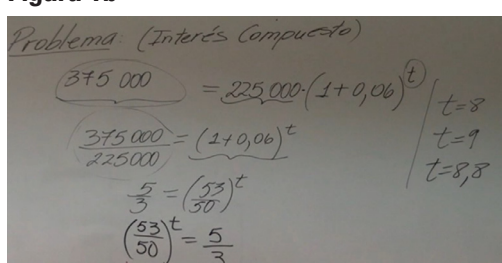 Problema. (Interés Compuesto)
375 000 = 225 000·(1+0,06)^t
375 000 / 225 000 = (1+0,06)^t
5/3 = (53/50)^t
(53/50)^t = 5/3
t=8
t=9
t=8,8